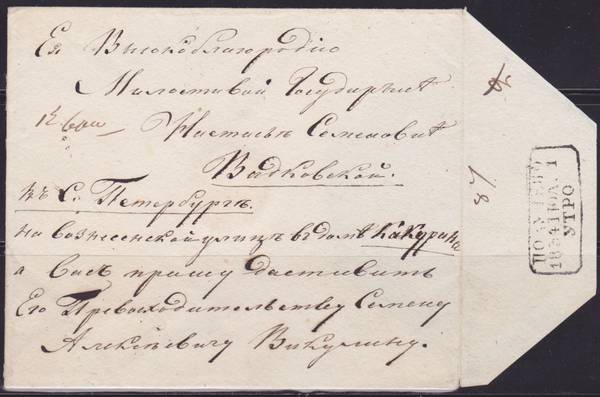 Ея Высокоблагородiю
Милостивой Государынѣ
Настасьѣ Семеновнѣ
Вадковской.
въ С. Петербургѣ.
на вознесенской улицѣ в домѣ Какурина
а Васъ прошу доставить
Его Превосходительству Семену
Алексѣевичу Викулину.
87
ПОЛУЧЕНО
1834 ІЮЛ. 1
УТРО